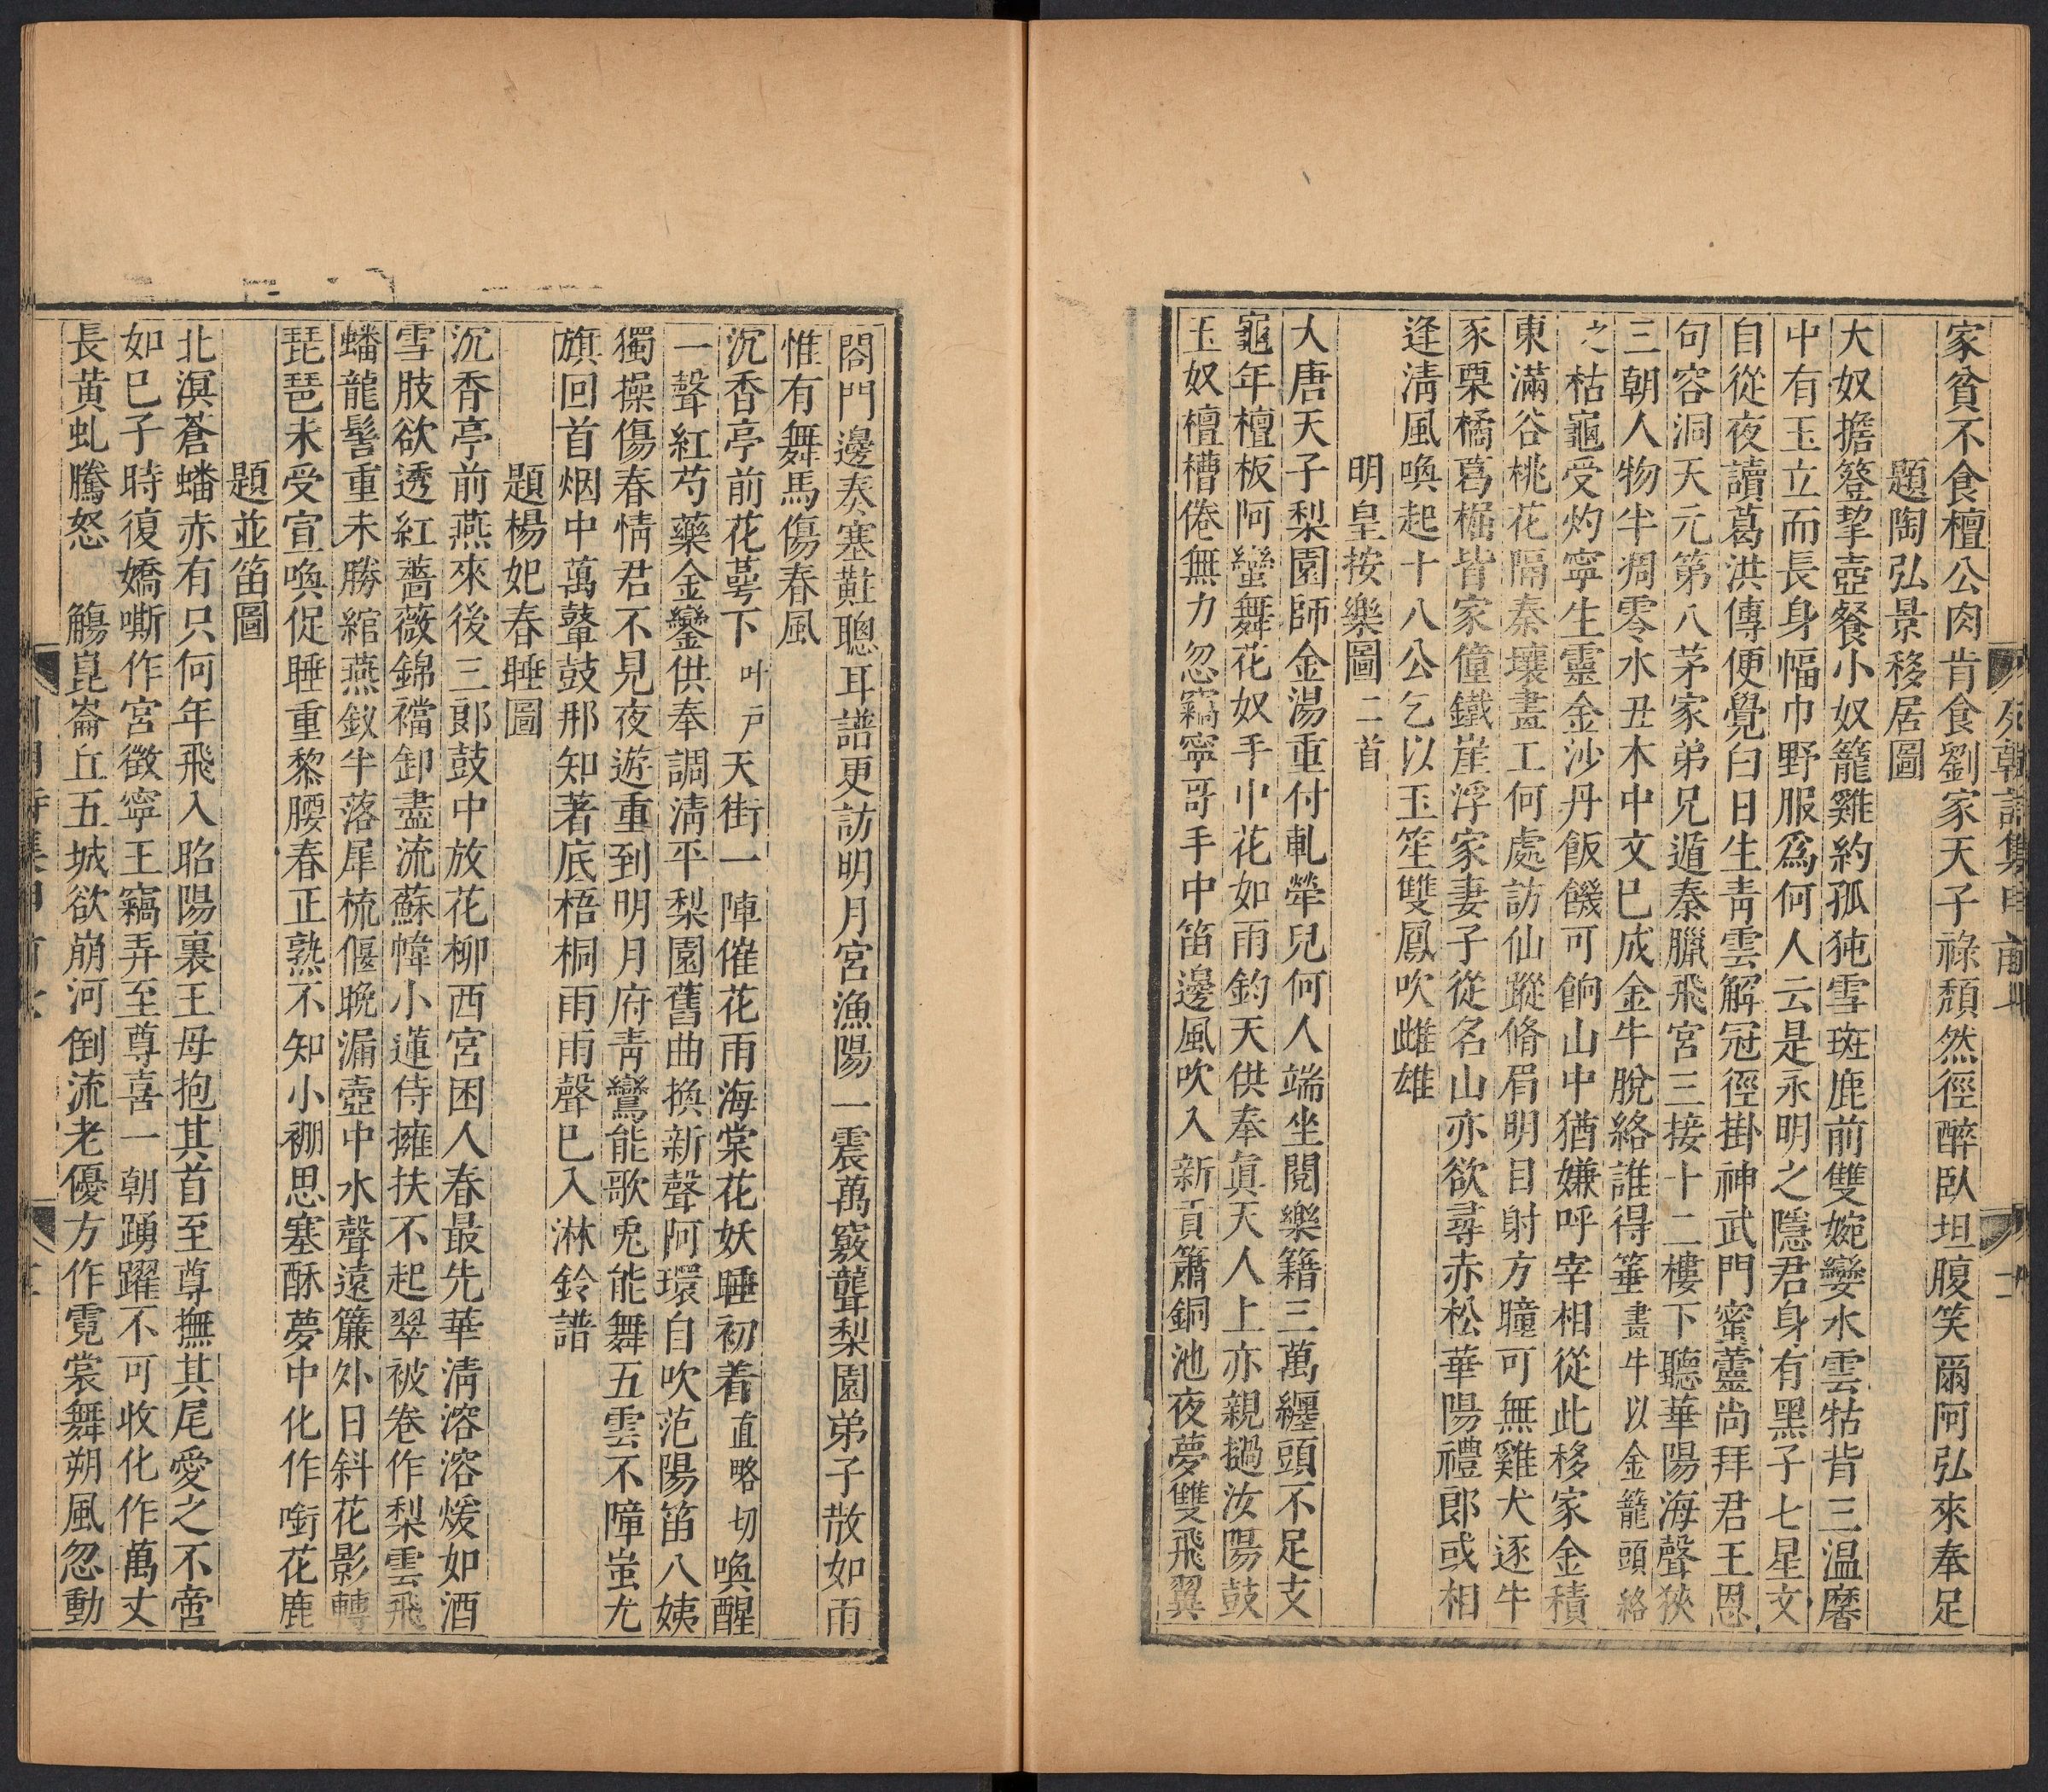 家貧不食檀公肉肯食劉家天子祿頹然徑醉臥坦腹笑爾阿弘來奉足
題陶弘景移居圖
大奴擔簦挈壺餐小奴籠雞約孤㹠雪斑鹿前雙婉孌水雲牯背三温麐
中有玉立而長身幅巾野服爲何人云是永明之隱君身有黑子七星文
自從夜讀葛洪傳便覺白日生靑雲解冠徑掛神武門蜜蘦尚拜君王恩
句容洞天元第八茅家弟兄遁秦臘飛宮三接十二樓下聽華陽海聲狹
三朝人物半凋零水丑木中文巳成金牛脫絡誰得箠畫牛以金籠頭絡
之枯龜受灼寧生靈金沙丹飯饑可餉山中猶嫌呼宰相從此移家金積
東滿谷桃花隔秦壤畫工何處訪仙蹤脩眉明目射方瞳可無雞犬逐牛
豕栗橘葛梔皆家僮鐵崖浮家妻子從名山亦欲尋赤松華陽禮郞或相
逢淸風喚起十八公乞以玉笙雙鳳吹雌雄
明皇按樂圖二首
大唐天子梨園師金湯重付軋犖兒何人端坐閱樂籍三萬纏頭不足支
龜年檀板阿蠻舞花奴手巾花如雨釣天供奉眞天人上亦親撾汝陽鼓
玉奴檀槽倦無力忽竊寧哥手中笛邊風吹入新貢簫銅池夜夢雙飛翼
閤門邊奏塞黈聰耳譜更訪明月宮漁陽一震萬竅聾梨園弟子散如雨
惟有舞馬傷春風
沉香亭前花萼下叶戸天街一陣催花雨海棠花妖睡初着直略切喚醒
一聲紅芍藥金鑾供奉調淸平梨園舊曲換新聲阿環自吹范陽笛八姨
獨操傷春情君不見夜遊重到明月府靑鸞能歌兎能舞五雲不障蚩尤
旗回首烟中萬鼙鼓那知著底梧桐雨雨聲巳入淋鈴譜
題楊妃春睡圖
沉香亭前燕來後三郞鼓中放花柳西宮困人春最先華淸溶溶煖如酒
雪肢欲透紅薔薇錦襠卸盡流蘇幃小蓮侍擁扶不起翠被卷作梨雲飛
蟠龍髻重未勝綰燕釵半落犀梳偃晩漏壺中水聲遠簾外日斜花影轉
琵琶未受宣喚促睡重黎腰春正熟不知小棚思塞酥夢中化作啣花鹿
題並笛圖
北溟蒼蟠赤有只何年飛入昭陽裏王母抱其首至尊撫其尾愛之不啻
如巳子時復嬌嘶作宮徵寧王竊弄至尊喜一朝踴躍不可收化作萬丈
長黄虬騰怒觴崑崙丘五城欲崩河倒流老優方作霓裳舞朔風忽動